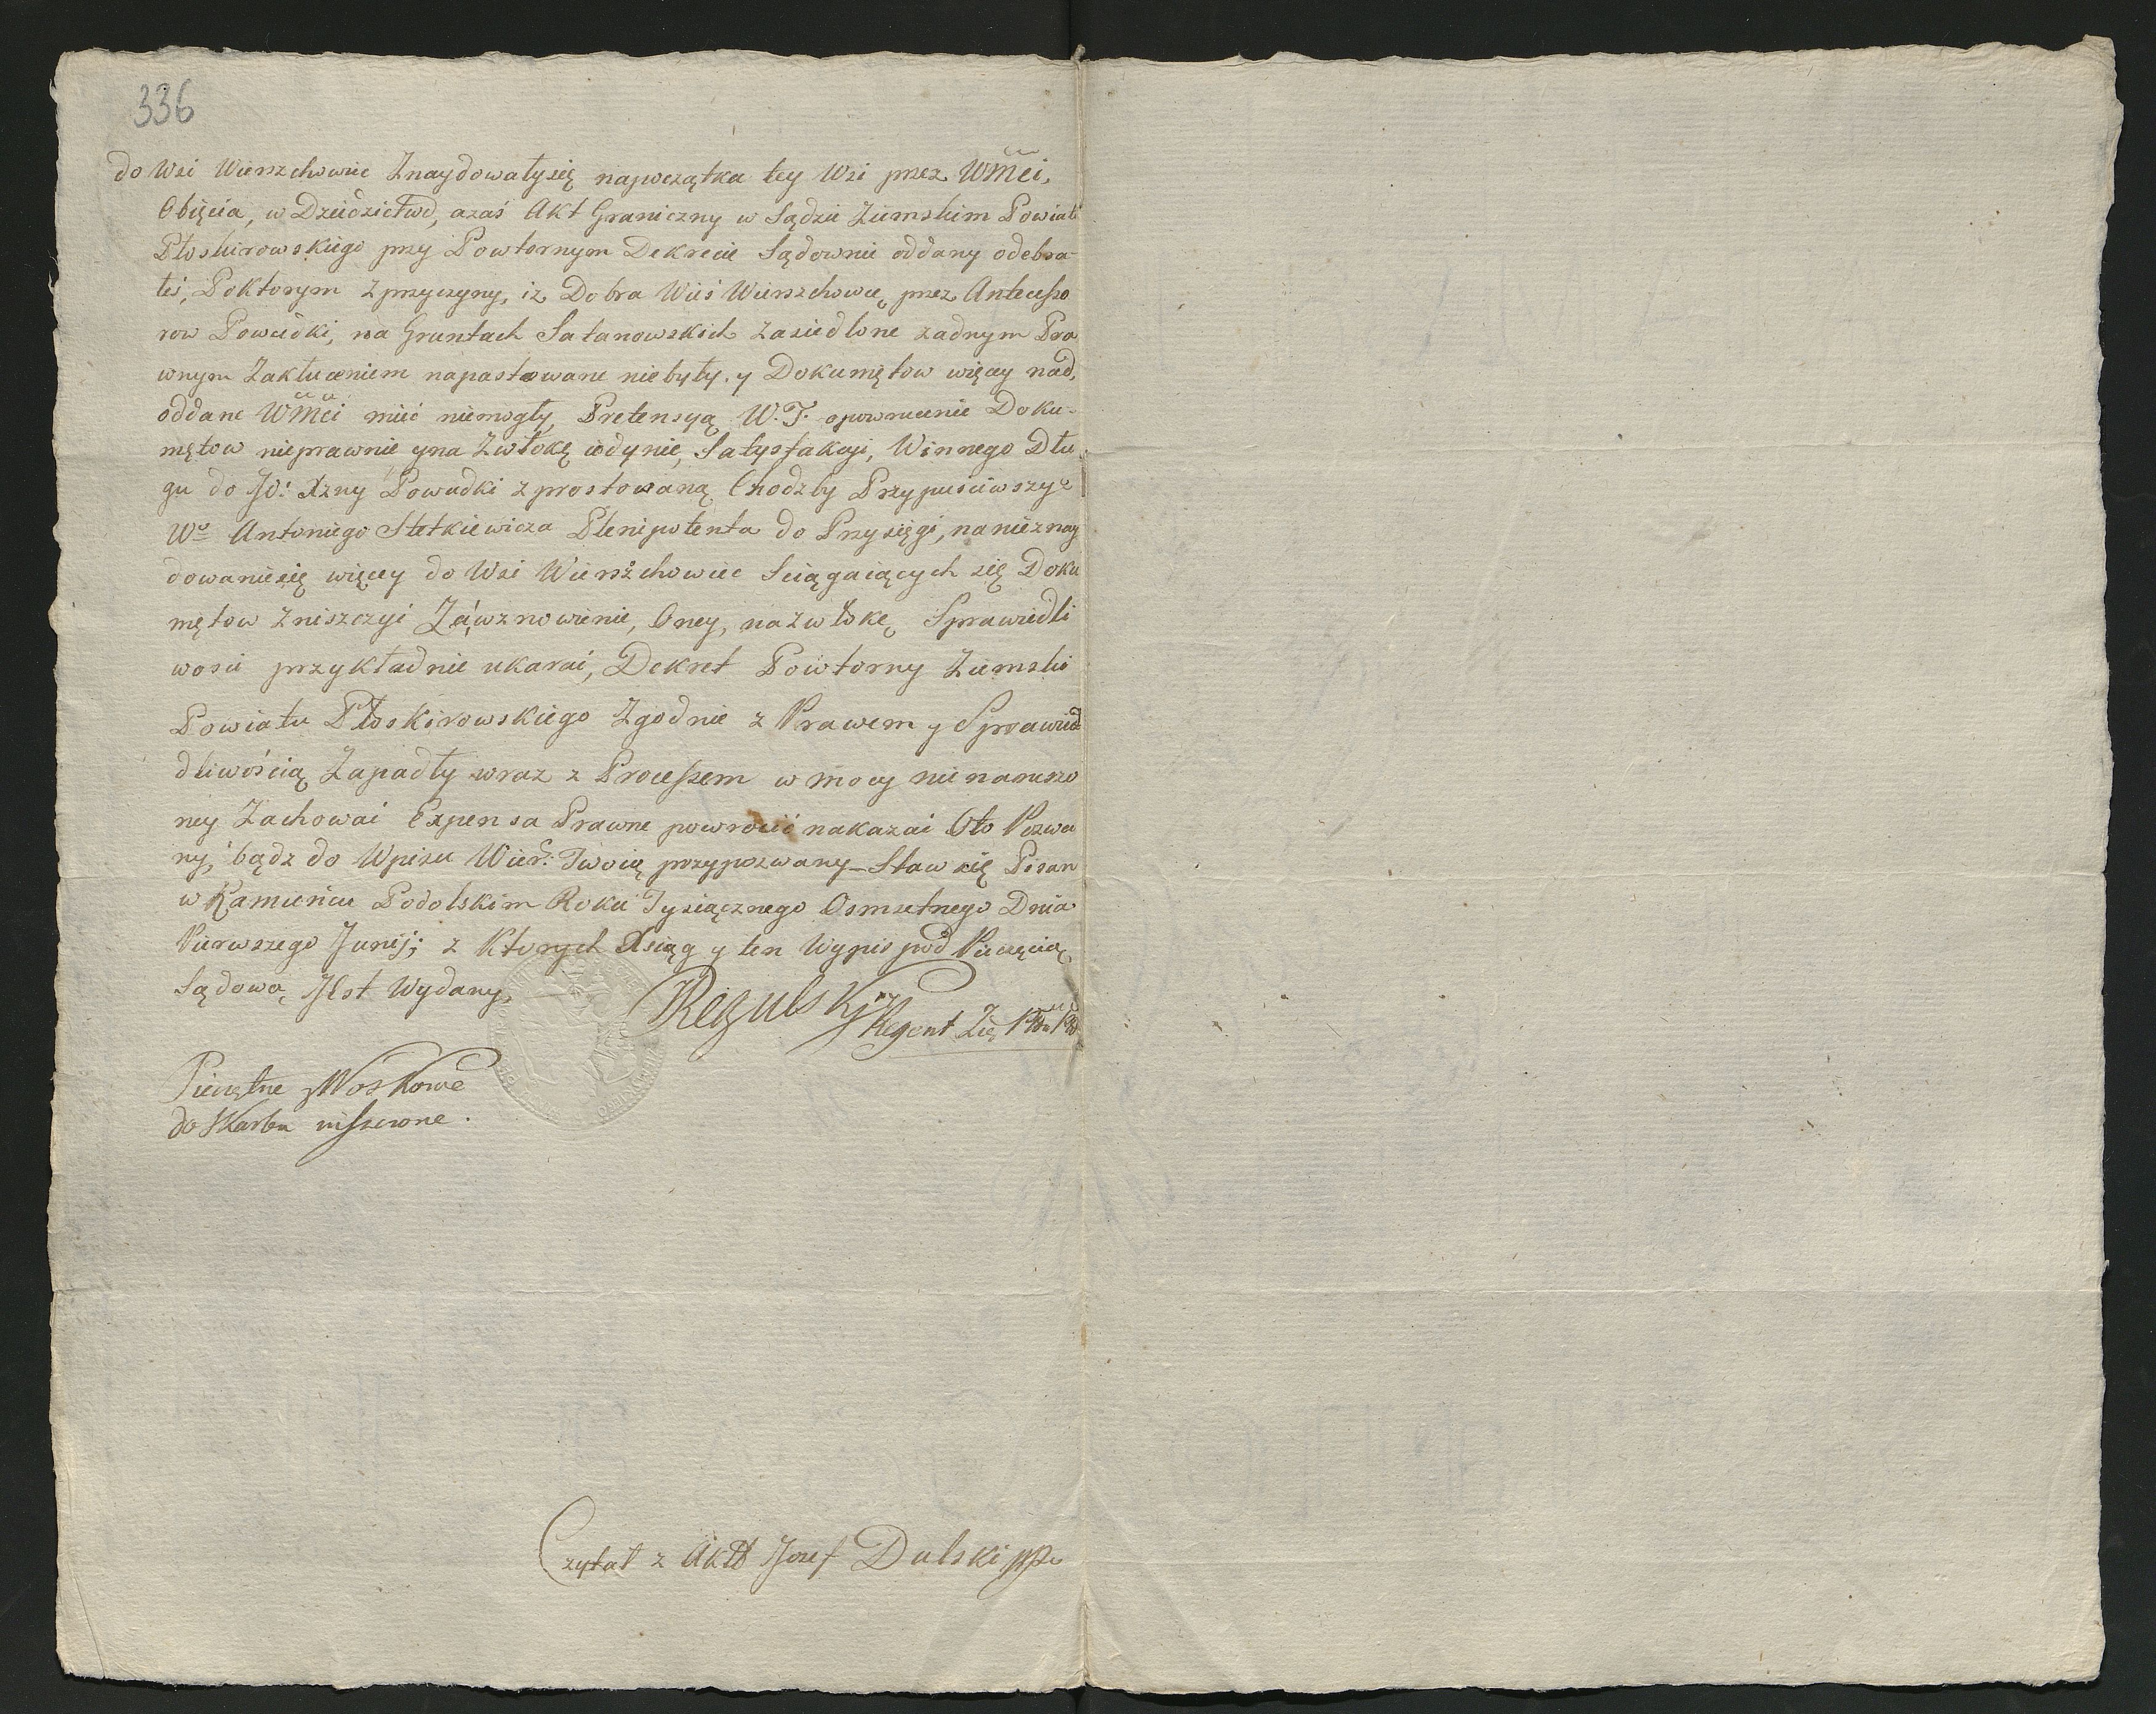 336
do Wsi Wierzchowiec Znaydowały się napoczątku tey Wsi przez WMci,
Obięcia, w Dziedzictwo, azaś Akt Graniczny w Sądzie Ziemskim Powiatu
Płoskirowskiego przy Powtornym Dekrecie Sądownie oddany odebra-
łeś, Poktorym z przyczyny, iz Dobra Wieś Wierzchowce, przez Antecesso
row Powodki, na Gruntach Satanowskich zasiedlone zadnym Pra
wnym Zakłuceniem napastowane niebyły, y Dokumętow więcey nad,
oddane WMci mieć niemogły, Pretensyą W. T. opowrucenie Doku-
mętow nieprawnie yna Zwłokę iedynie, Satysfakcyi, Winnego Dłu
gu do JO: Xzny Powodki z prostowaną Chodzby Przypuściwszy
Wo Antoniego Stetkiewicza Plenipotenta do Przysięgi, na nieznay
dowanie się więcey do Wsi Wierzchowiec Sciągaiących się Doku
mętow Zniszczyć Zá wznowienie, Oney, nazwłokę Sprawiedli
wosci przykładnie ukarać, Dekret Powtorny Ziemski
Powiatu Płoskirowskiego Zgodnie z Prawem y Sprawied
dliwością Zapadły wraz z Processem w mocy nie naruszo
ney Zachować Expensa Prawne powrocić nakazać Oto Pozwa
ny, bądz do Wpisu Wier: Twoię przypozwany Staw się Pisan
w Kamieńcu Podolskim Roku Tysiącznego Osmsetnego Dnia
Pierwszego Junij; z Ktorych Xsiąg y ten Wypis pod Pieczęcią
Sądową Jest Wydany,
Regulskj Regent
Pieczętne y Woskowe
do Skarbu wniesione.
Czytał z Aktt Jozef Dulski mp